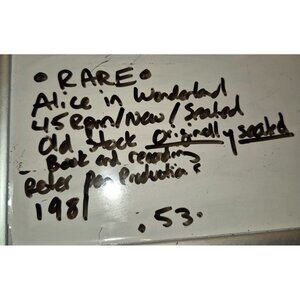 • RARE •
Alice in Wonderland
45 Rpm / New / Sealed
Old Stock Originally sealed
- Book and recording
Peter Pan Productions
1981
.53.